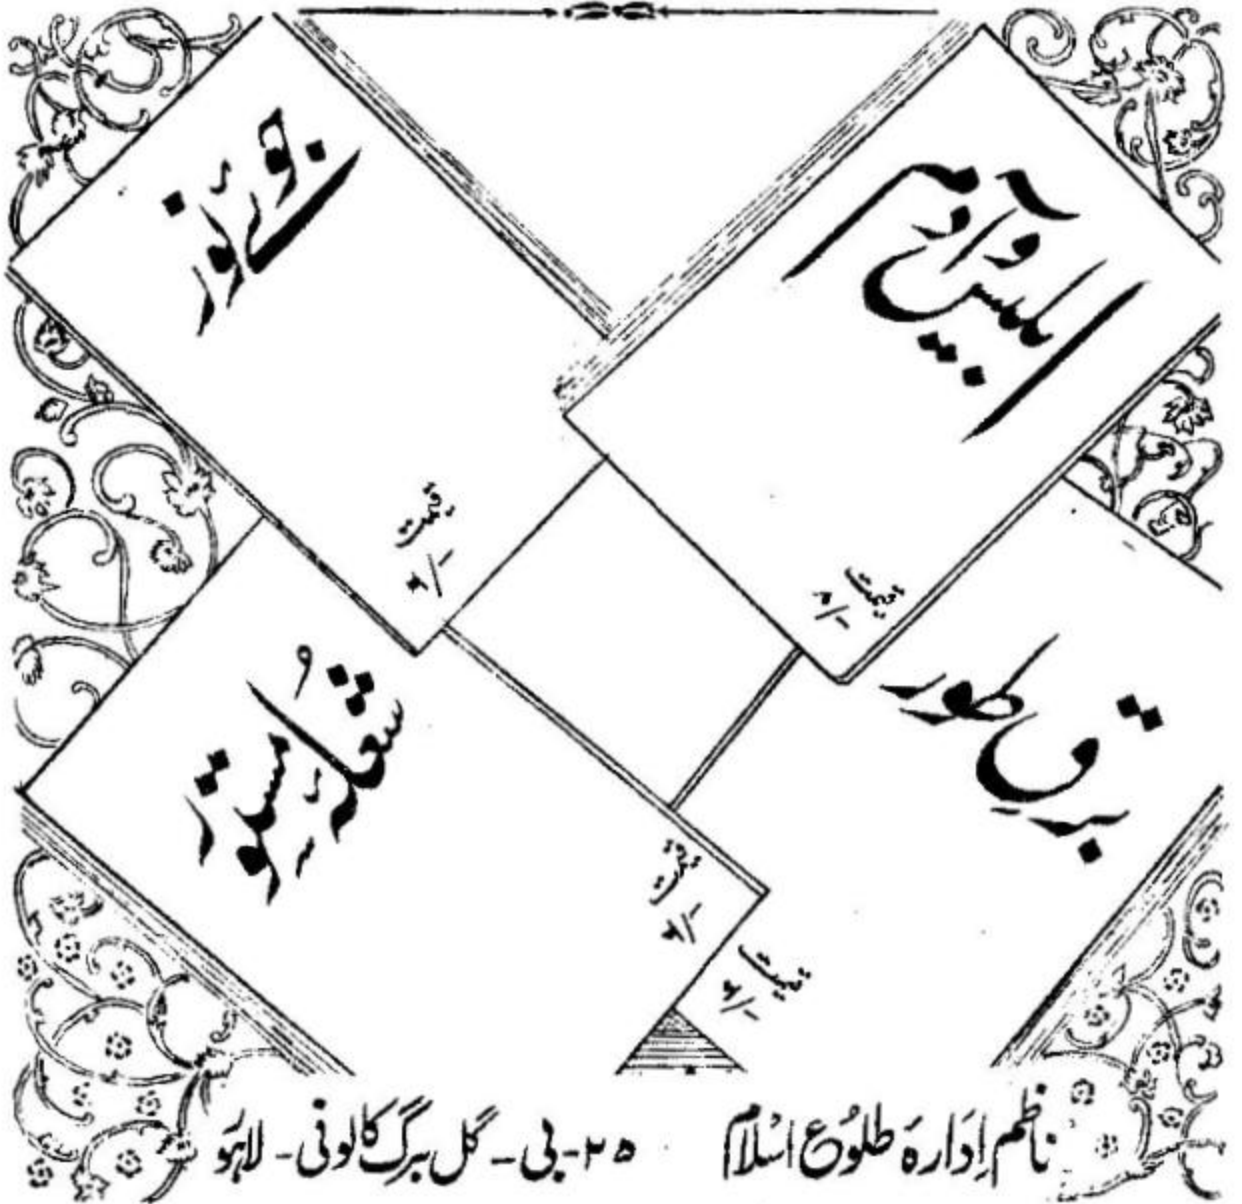 ابلیس و آدم
قیمت
جوئے نور
قیمت
برق طور
قیمت
شعلۂ مستور
قیمت
ناظم اِدَارہ طلوُع اسلام ۲۵-بی-گل برگ کالونی-لاہو